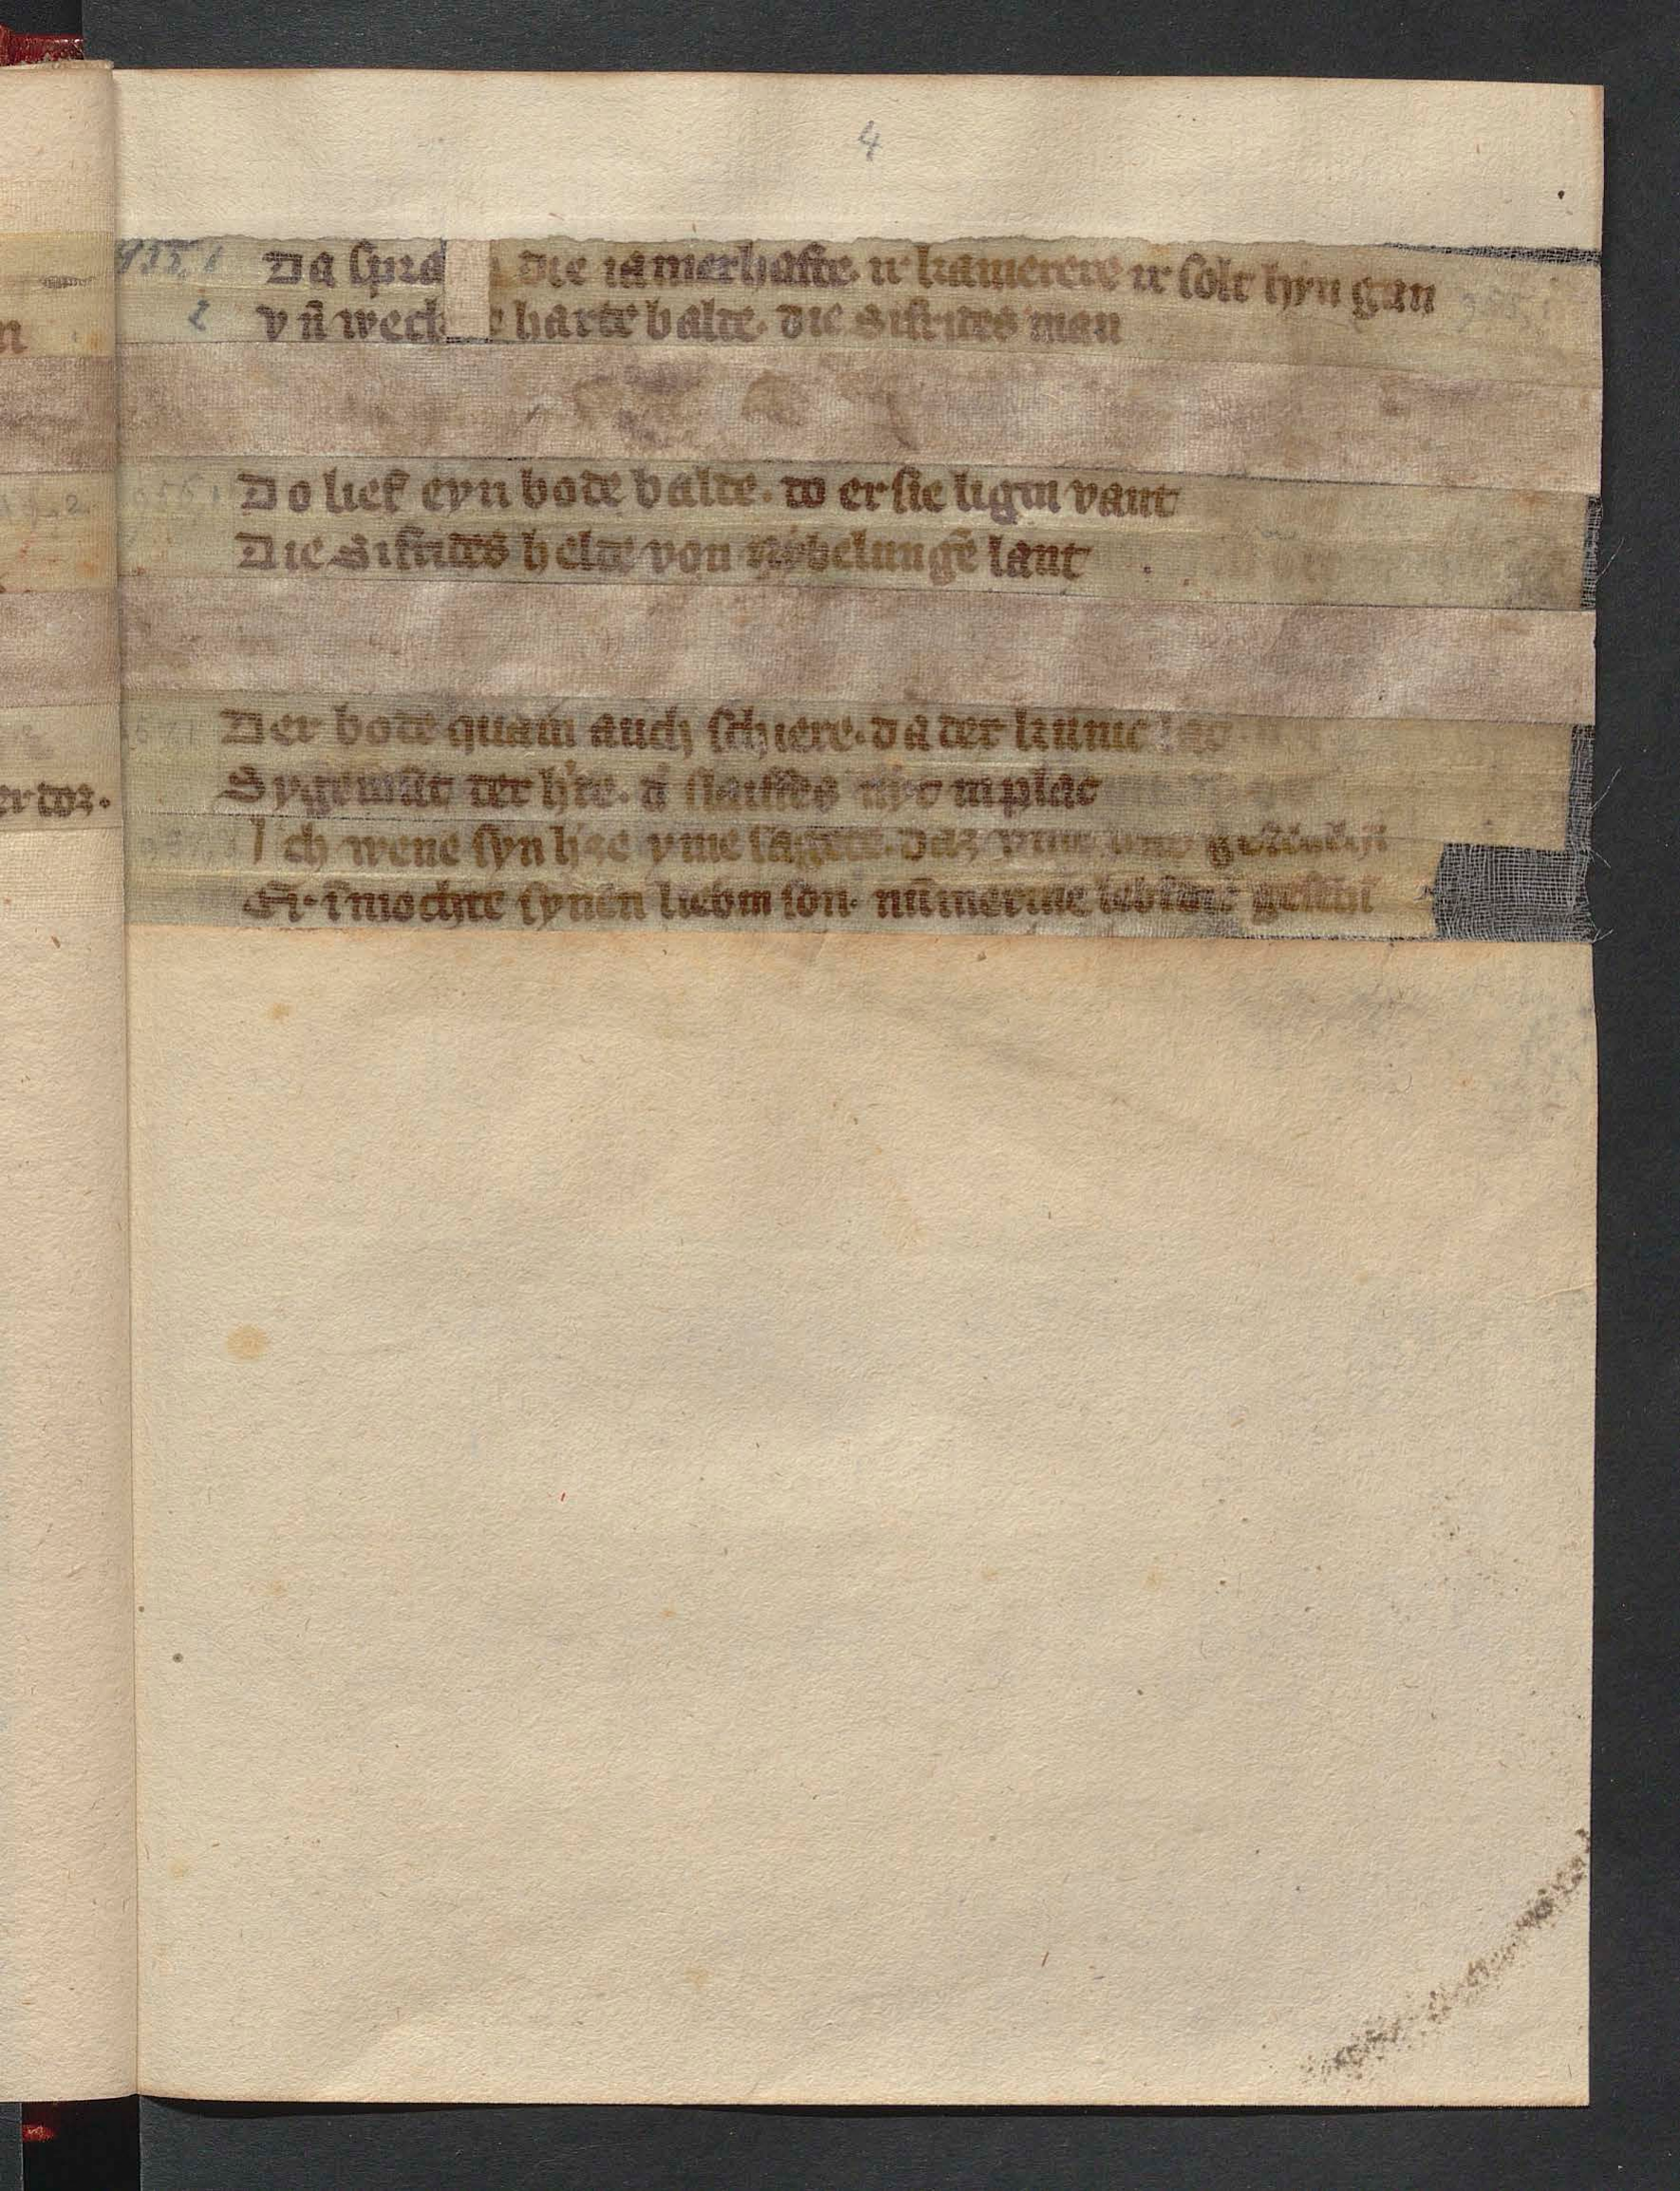 4
955,1 Da spra die iamerhafte. ir kamerere ir solt hyn gan
2 vn̄ weck e harte balde. die Sifrides man
Do lief eyn bode balde. do er sie ligin vant
Die Sifrides helde von Nybelungē lant
Der bode quam auch schiere. da der kunic lac
Sygemūt der h're. d' slaiffes nyt inplac
Ich wene syn h'ze yme sagete. daz yme was
Er in mochte synen liebin son. nūmerme
n
er dor.